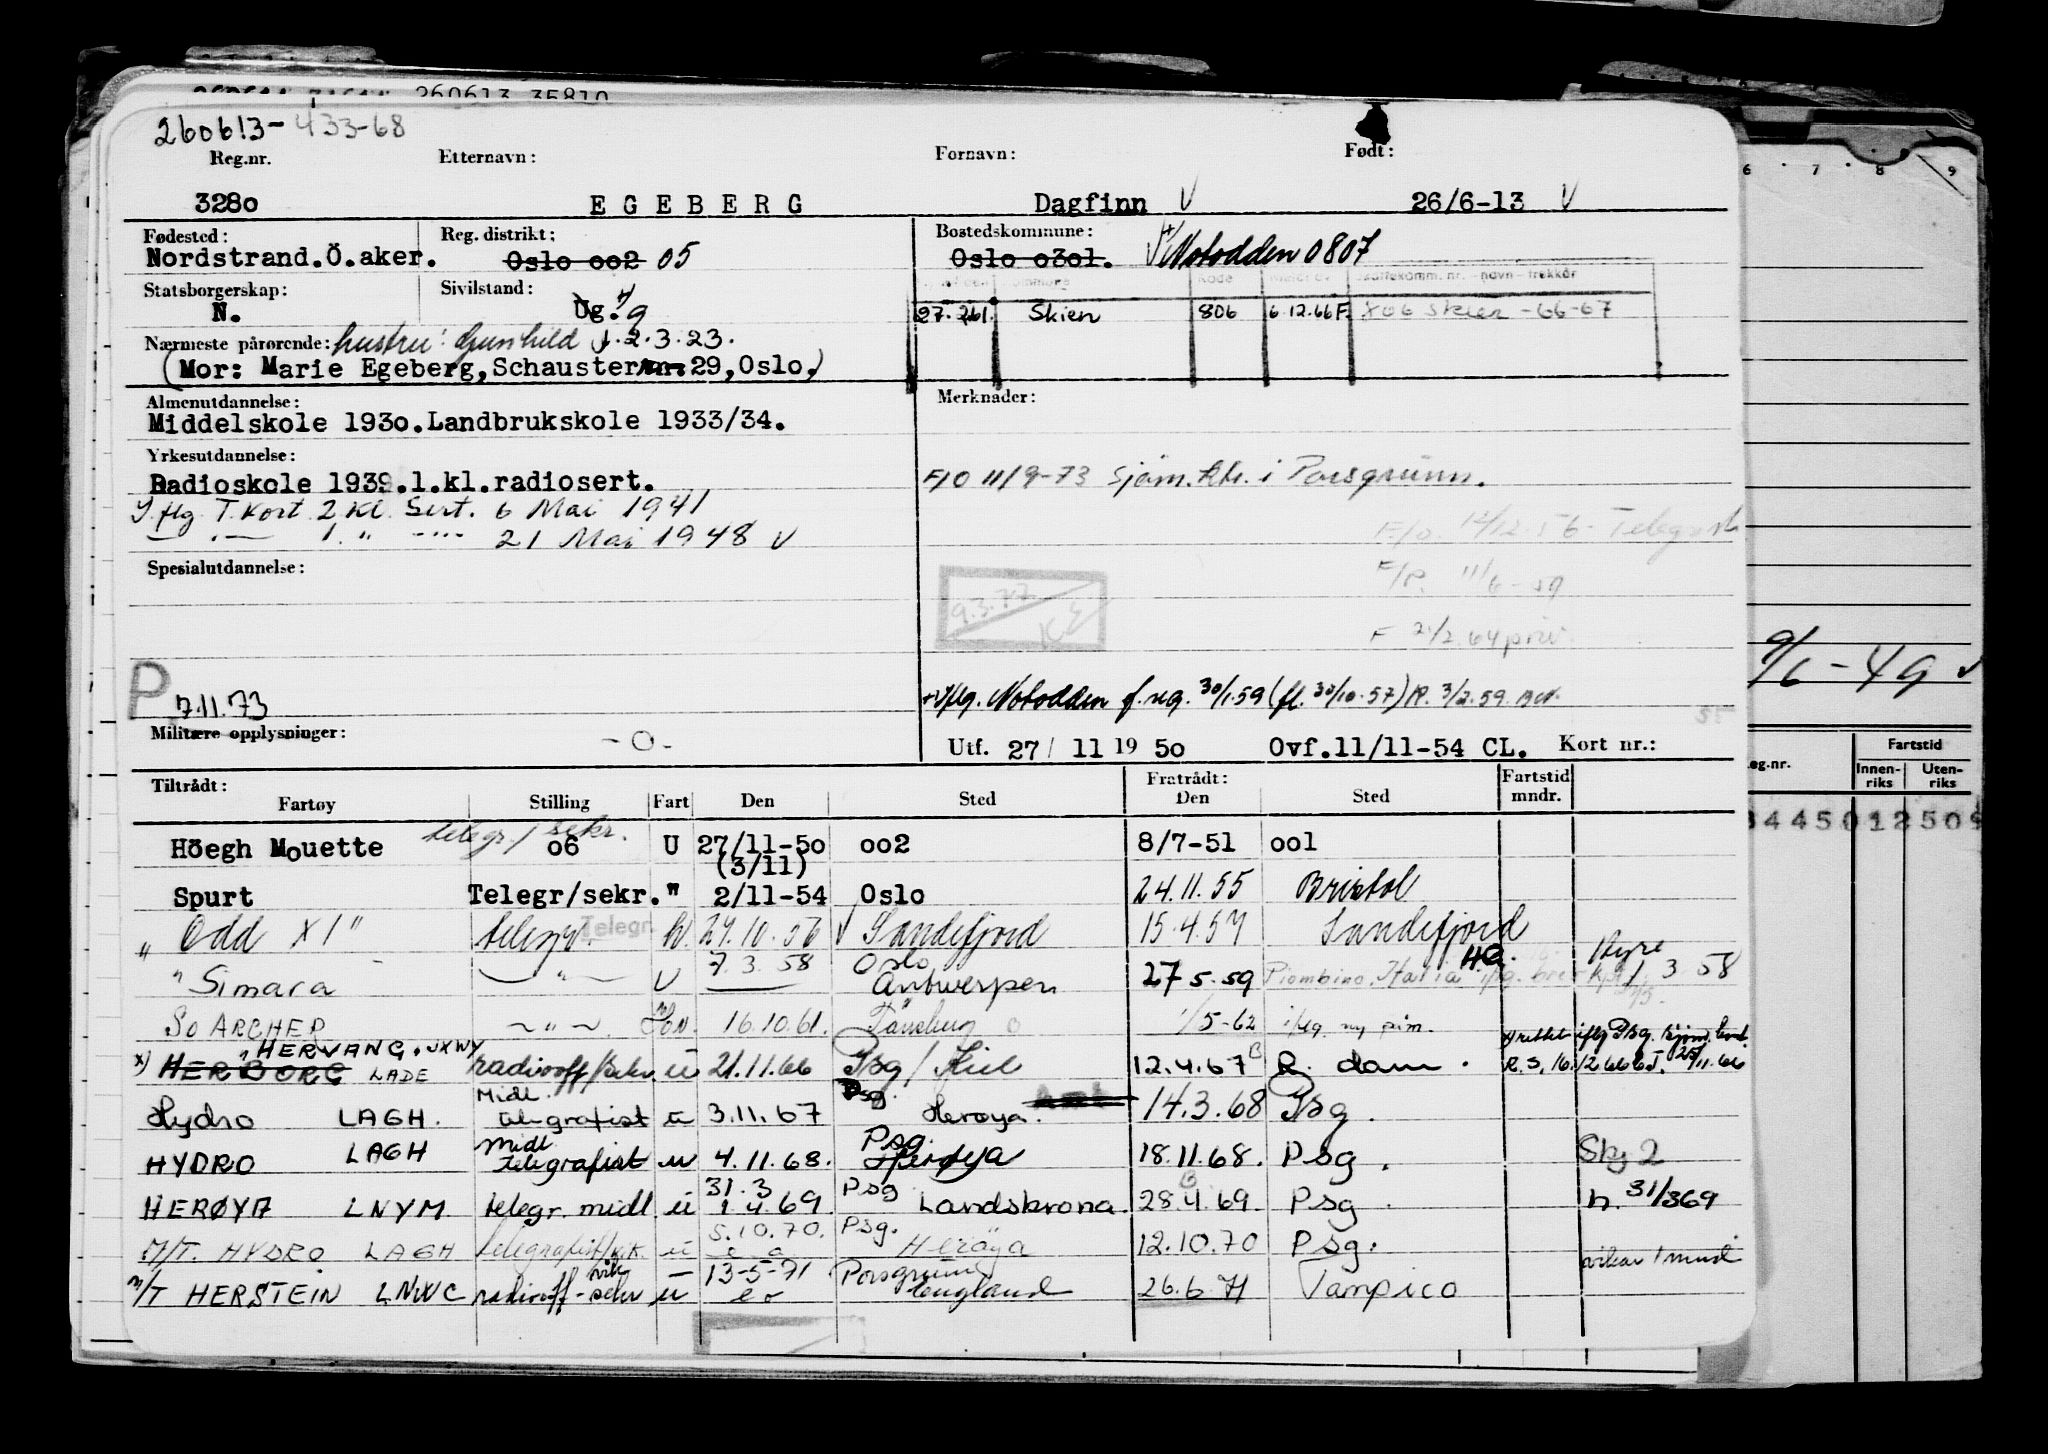 260613 35810
260613-433-68
Reg.nr. Etternavn: Fornavn: Født:
3280 EGEBERG Dagfinn V 26/6-13 V
Fødested: Reg. distrikt: Bostedskommune:
Nordstrand.Ö.aker. Oslo 002 05 Oslo 0301. Notodden 0807
Statsborgerskap: Sivilstand:
N. Ug. g
27. 261. Skien 806 6.12.66 F. 806 Skien -66-67
Nærmeste pårørende: hustru: Gunhild f. 2.3.23.
(Mor: Marie Egeberg, Schauster 29, Oslo.)
Almenutdannelse: Merknader:
Middelskole 1930. Landbrukskole 1933/34.
Yrkesutdannelse:
Radioskole 1939. 1.kl.radiosert.
F/O 11/9-73 Sjøm. ktr. i Porsgrunn.
I. flg. T. kort 2 Kl. Sert. 6 Mai 1941
— " — 1. " ---- 21 Mai 1948 V
F/o. 12/12-56 Telegrafist
Spesialutdannelse:
F/P. 11/6-59
9.3.77 KE
F 21/2.64 priv.
9/6-49 V
P. 7.11.73
iflg. Notodden f. reg. 30/1.59 (fl. 30/10-57) R. 3/2.59
Militære opplysninger: -0-
Utf. 27/ 11 19 50 Ovf.11/11-54 CL. Kort nr.:
Tiltrådt: Fratrådt: Fartstid mndr.
Fartøy Stilling Fart Den Sted Den Sted
eg.nr. Fartstid Innenriks Utenriks
telegr./sekr.
Höegh Mouette 06 U 27/11-50 002 8/7-51 001
(3/11)
Spurt Telegr/sekr. " 2/11-54 Oslo 24.11.55 Bristol
" Odd XI" telegr. Telegr. h. 29.10.56 V Sandefjord 15.4.57 Sandefjord
" Simara — " — U 7.3.58 Oslo Antwerpen 27 5.59 Piombino, Italia Hyre 1/3 58
So ARCHER — " — 16.10.61. Tønsberg 1/5-62 iflg. ny
x) HERBORG "HERVANG. JXWY LADE radiooff/sekr. u 21.11.66 Psg / Kiel 12.4.67 R. dam.
Hydro LAGH. Midl. telegrafist u 3.11.67 Psg. Herøya. 14.3.68 Psg.
HYDRO LAGH Midl telegrafist u 4.11.68. Psg. Herøya 18.11.68. Psg. Skj 2
HERØYA LNYM telegr. midl u 31.3 1.4.69 Psg Landskrona. 28.4.69. Psg. h. 31/369
M/T. HYDRO LAGH telegrafist/vik. u 5.10.70. Psg. Herøya 12.10.70 Psg.
M/T HERSTEIN LNWC radiooff-sekr vik u 13-5-71 Porsgrunn England 26.6.71 Tampico